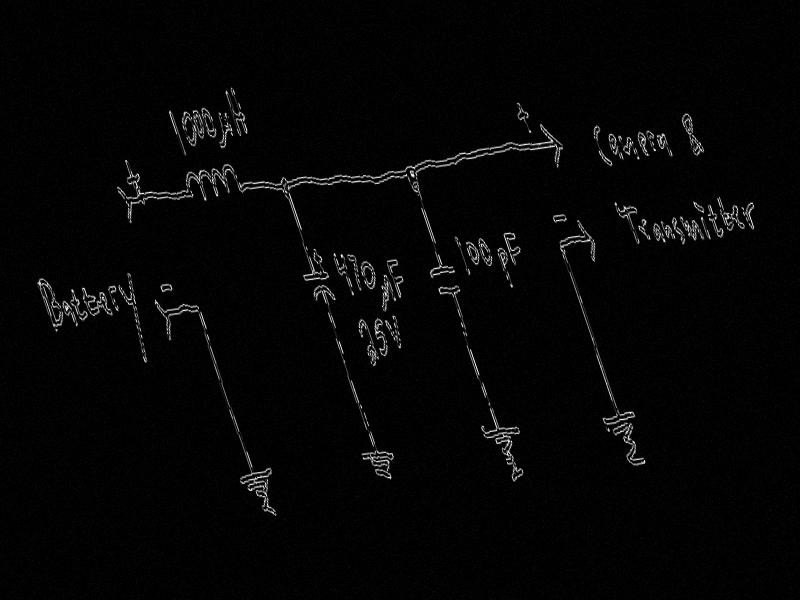 1000µH
+
+
Camera &
Transmitter
-
Battery
-
+
470µF
25V
100pF